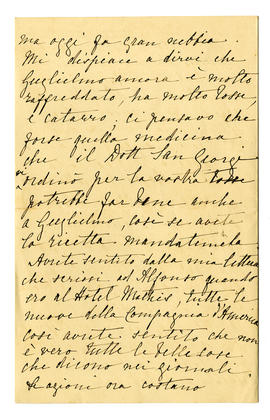 ma oggi fa gran nebbia.
Mi dispiace a dirvi che
Guglielmo ancora è molto
raffreddato, ha molto tosse,
e catarro; ci pensavo che
forse quella medicina
che il Dott San Georgi
ordinò per la vostra tosse
potrebbe far bene anche
a Guglielmo, così se avete
la ricetta mandatemela.
Avrete sentito dalla mia lettera
che scrissi ad Alfonso quando
ero al Hotel, tutte le
nuove della Compagnia d'America
così avrete sentito che non
è vero tutte le belle cose
che dicono nei giornali.
Le azioni ora costano